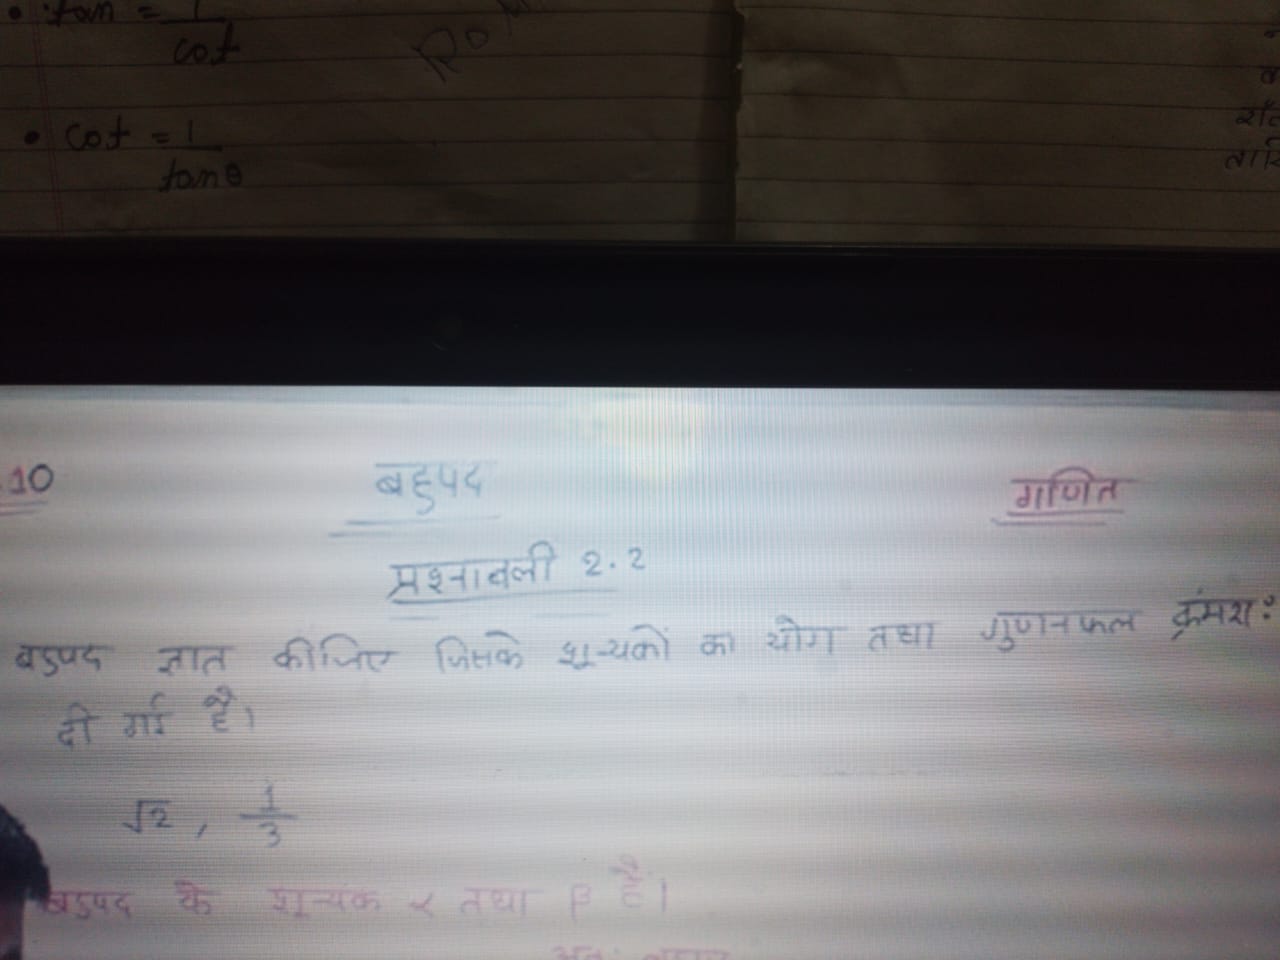 • tan = 1
cot
• cot = 1
tanθ
10
बहुपद
गणित
प्रश्नावली 2.2
बहुपद ज्ञात कीजिए जिसके शून्यकों का योग तथा गुणनफल क्रंमश:
दी गई है।
√2, 1/3
बहुपद के शून्यक α तथा β है।